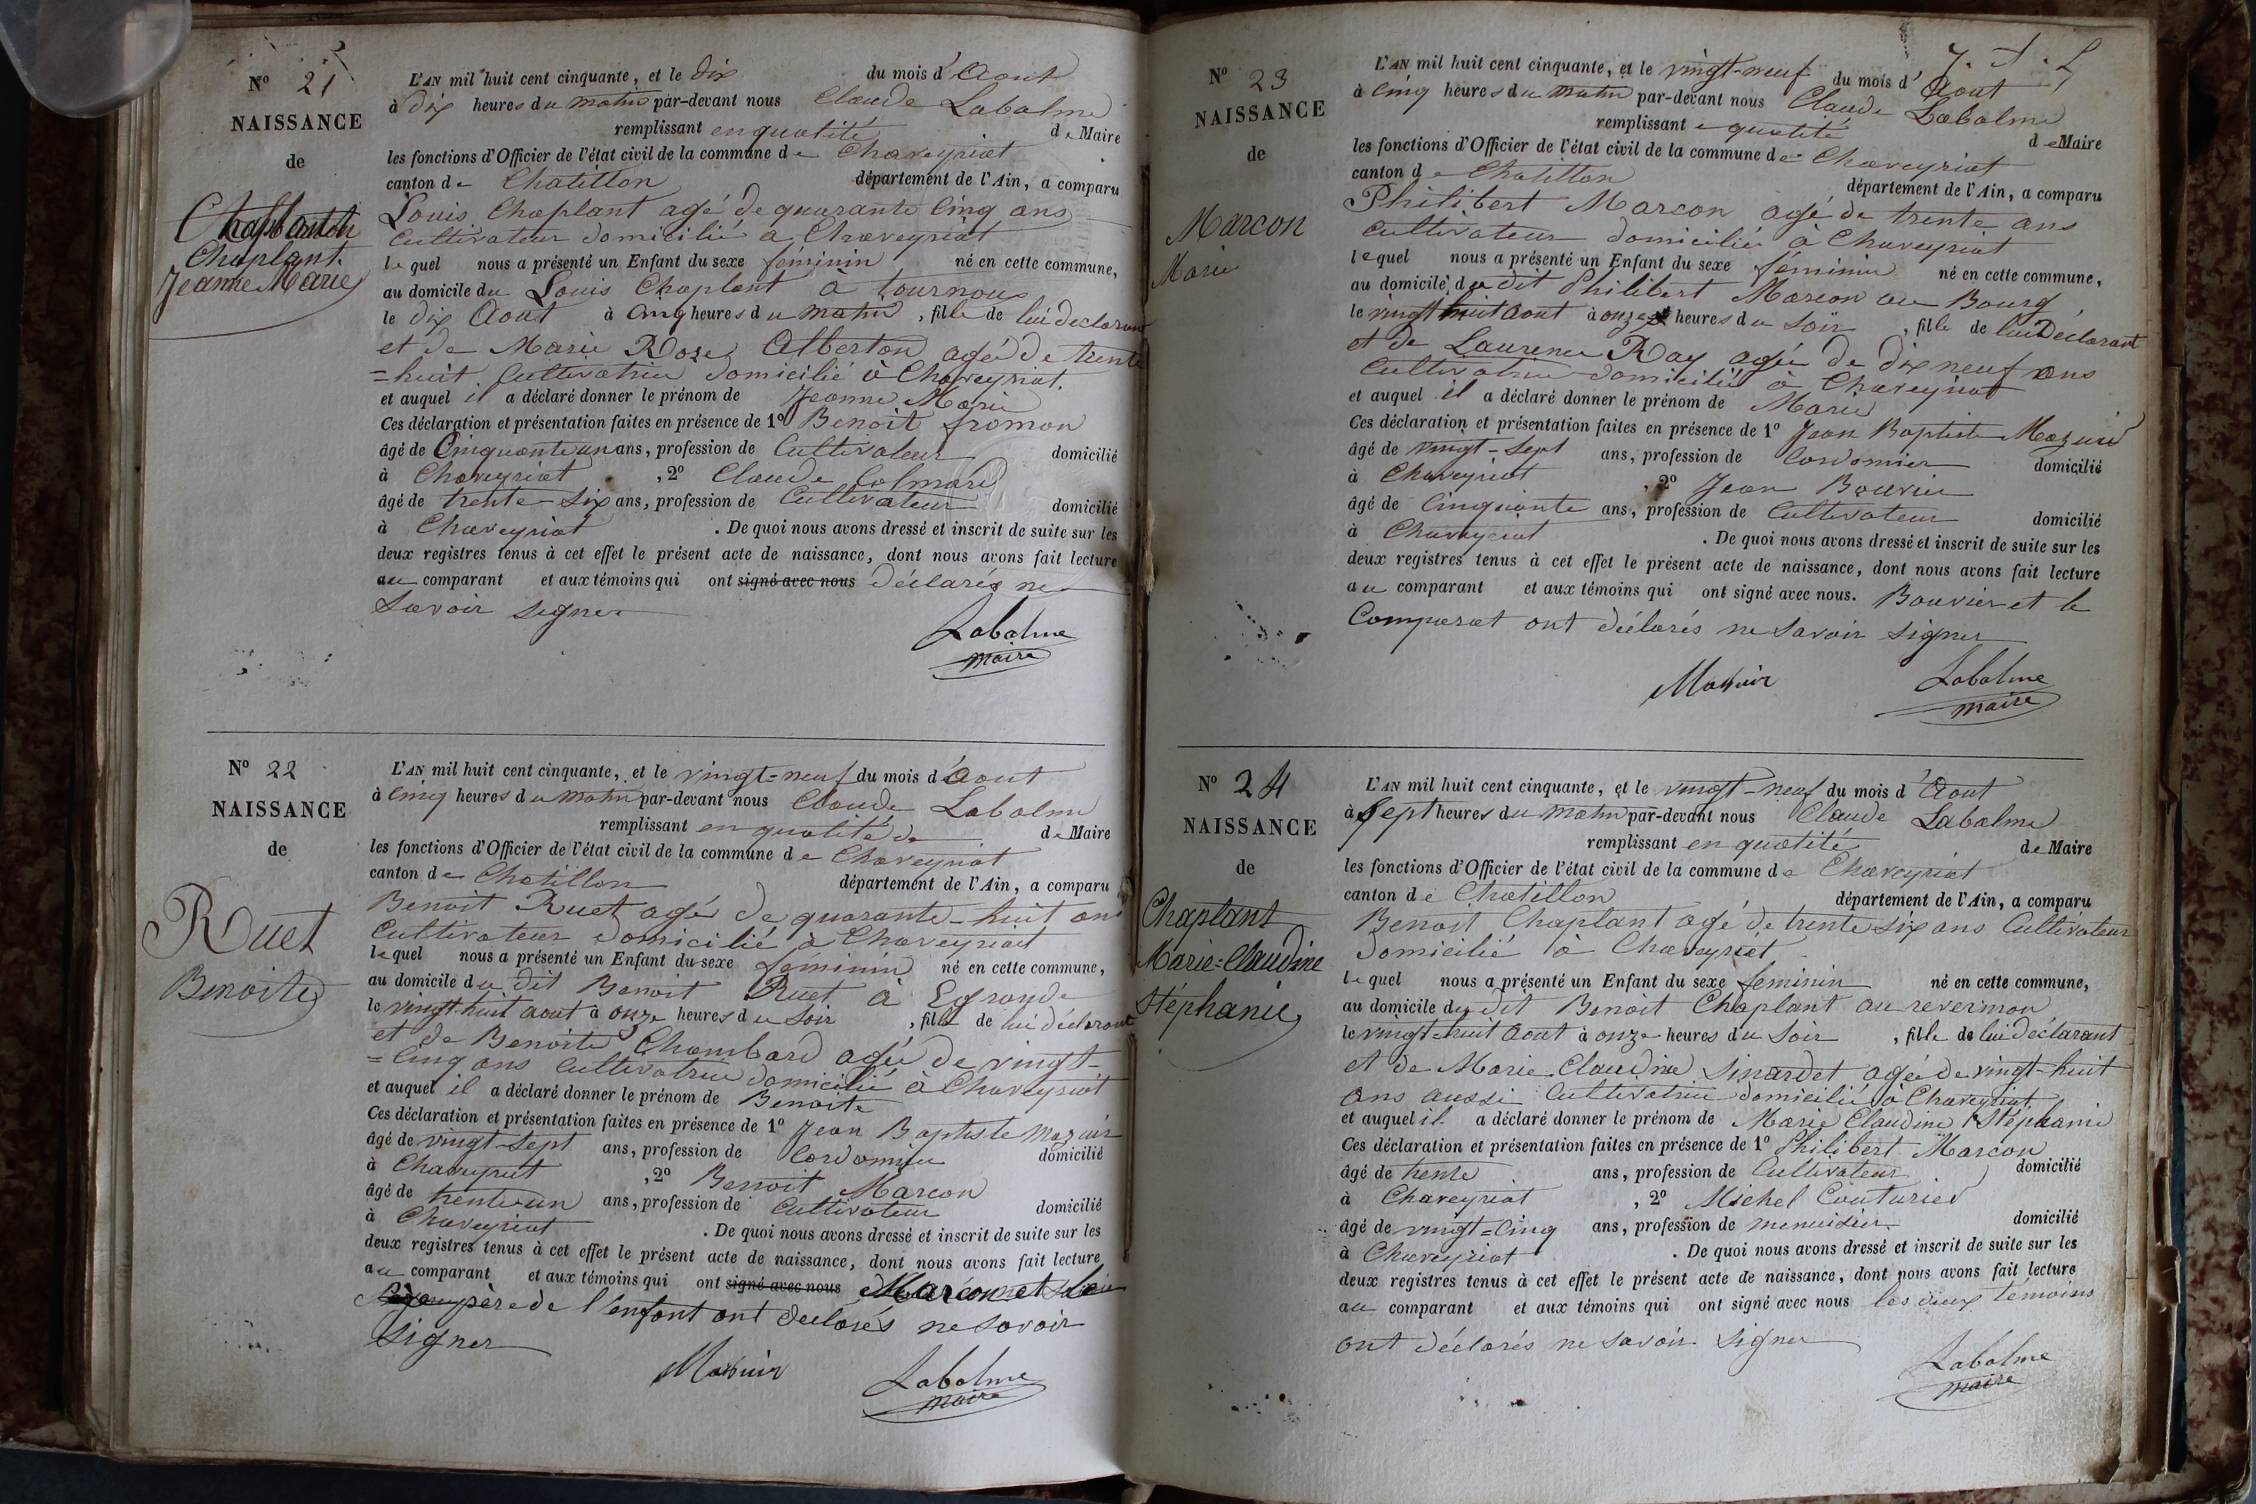 N° 21
NAISSANCE
de
Chaplant
Jeanne Marie
L'AN mil huit cent cinquante, et le dix du mois d'Aout
à dix heures du matin par-devant nous Claude Labalme
remplissant en qualité de Maire
les fonctions d'Officier de l'état civil de la commune de Chaveyriat
canton de Chatillon département de l'Ain, a comparu
Louis Chaplant agé de quarante cinq ans
Cultivateur domicilié à Chaveyriat
lequel nous a présenté un Enfant du sexe féminin né en cette commune,
au domicile du Louis Chaplant à tournous
le dix Aout à cinq heures du matin, fille de lui déclarant
et de Marie Roze Alberton agée de trente
=huit Cultivatrice domicilié à Chaveyriat.
et auquel il a déclaré donner le prénom de Jeanne Marie
Ces déclaration et présentation faites en présence de 1° Benoit fromon
âgé de Cinquante un ans, profession de Cultivateur domicilié
à Chaveyriat, 2° Claude Colmard
âgé de trente-six ans, profession de Cultivateur domicilié
à Chaveyriat. De quoi nous avons dressé et inscrit de suite sur les
deux registres tenus à cet effet le présent acte de naissance, dont nous avons fait lecture
au comparant et aux témoins qui ont signé avec nous déclarés ne
savoir signer
Labalme
maire
N° 22
NAISSANCE
de
Ruet
Benoite
L'AN mil huit cent cinquante, et le vingt=neuf du mois d'Aout
à cinq heures du matin par-devant nous Claude Labalme
remplissant en qualité de de Maire
les fonctions d'Officier de l'état civil de la commune de Chaveyriat
canton de Chatillon département de l'Ain, a comparu
Benoit Ruet agé de quarante-huit ans
Cultivateur domicilié à Chaveyriat
lequel nous a présenté un Enfant du sexe féminin né en cette commune,
au domicile du dit Benoit Ruet à
le vingt-huit aout à onze heures du soir, fille de lui déclarant
et de Benoite Chambard agée de vingt-
=cinq ans Cultivatrice domicilié à Chaveyriat
et auquel il a déclaré donner le prénom de Benoite
Ces déclaration et présentation faites en présence de 1° Jean Baptiste Mazuir
âgé de vingt-sept ans, profession de Cordonnier domicilié
à Chaveyriat, 2° Benoit Marcon
âgé de trente-un ans, profession de Cultivateur domicilié
à Chaveyriat. De quoi nous avons dressé et inscrit de suite sur les
deux registres tenus à cet effet le présent acte de naissance, dont nous avons fait lecture
au comparant et aux témoins qui ont signé avec nous Marcon et
père de l'enfant ont déclarés ne savoir
signer
Mazuir
Labalme
maire
N° 23
NAISSANCE
de
Marcon
Marie
L'AN mil huit cent cinquante, et le vingt-neuf du mois d'Aout
à cinq heures du matin par-devant nous Claude Labalme
remplissant e qualité de Maire
les fonctions d'Officier de l'état civil de la commune de Chaveyriat
canton de Chatillon département de l'Ain, a comparu
Philibert Marcon agé de trente ans
Cultivateur domicilié à Chaveyriat
lequel nous a présenté un Enfant du sexe féminin né en cette commune,
au domicile du dit Philibert Marcon au Bourg
le vingt huit aout à onze heures du soir, fille de lui Déclarant
et de Laurence Ray agée de dix neuf ans
Cultivatrice domicilié à Chaveyriat
et auquel il a déclaré donner le prénom de Marie
Ces déclaration et présentation faites en présence de 1° Jean Baptiste Mazuir
âgé de vingt-sept ans, profession de Cordonnier domicilié
à Chaveyriat, 2° Jean Bouvier
âgé de Cinquante ans, profession de Cultivateur domicilié
à Chaveyriat. De quoi nous avons dressé et inscrit de suite sur les
deux registres tenus à cet effet le présent acte de naissance, dont nous avons fait lecture
au comparant et aux témoins qui ont signé avec nous. Bouvier et le
Comparat ont déclarés ne savoir signer
Mazuir
Labalme
maire
N° 24
NAISSANCE
de
Chaplant
Marie=Claudine
Stéphanie
L'AN mil huit cent cinquante, et le vingt-neuf du mois d'Aout
à Sept heures du matin par-devant nous Claude Labalme
remplissant en qualité de Maire
les fonctions d'Officier de l'état civil de la commune de Chaveyriat
canton de Chatillon département de l'Ain, a comparu
Benoit Chaplant agé de trente six ans Cultivateur
domicilié à Chaveyriat
lequel nous a présenté un Enfant du sexe féminin né en cette commune,
au domicile du dit Benoit Chaplant au revermon
le vingt-huit aout à onze heures du soir, fille de lui déclarant
et de Marie Claudine Sinardet agée de vingt-huit
ans aussi Cultivatrice domicilié à Chaveyriat
et auquel il a déclaré donner le prénom de Marie Claudine Stéphanie
Ces déclaration et présentation faites en présence de 1° Philibert Marcon
âgé de trente ans, profession de Cultivateur domicilié
à Chaveyriat, 2° Michel Couturier
âgé de vingt=cinq ans, profession de menuisier domicilié
à Chaveyriat. De quoi nous avons dressé et inscrit de suite sur les
deux registres tenus à cet effet le présent acte de naissance, dont nous avons fait lecture
au comparant et aux témoins qui ont signé avec nous les deux témoins
ont déclarés ne savoir signer
Labalme
maire